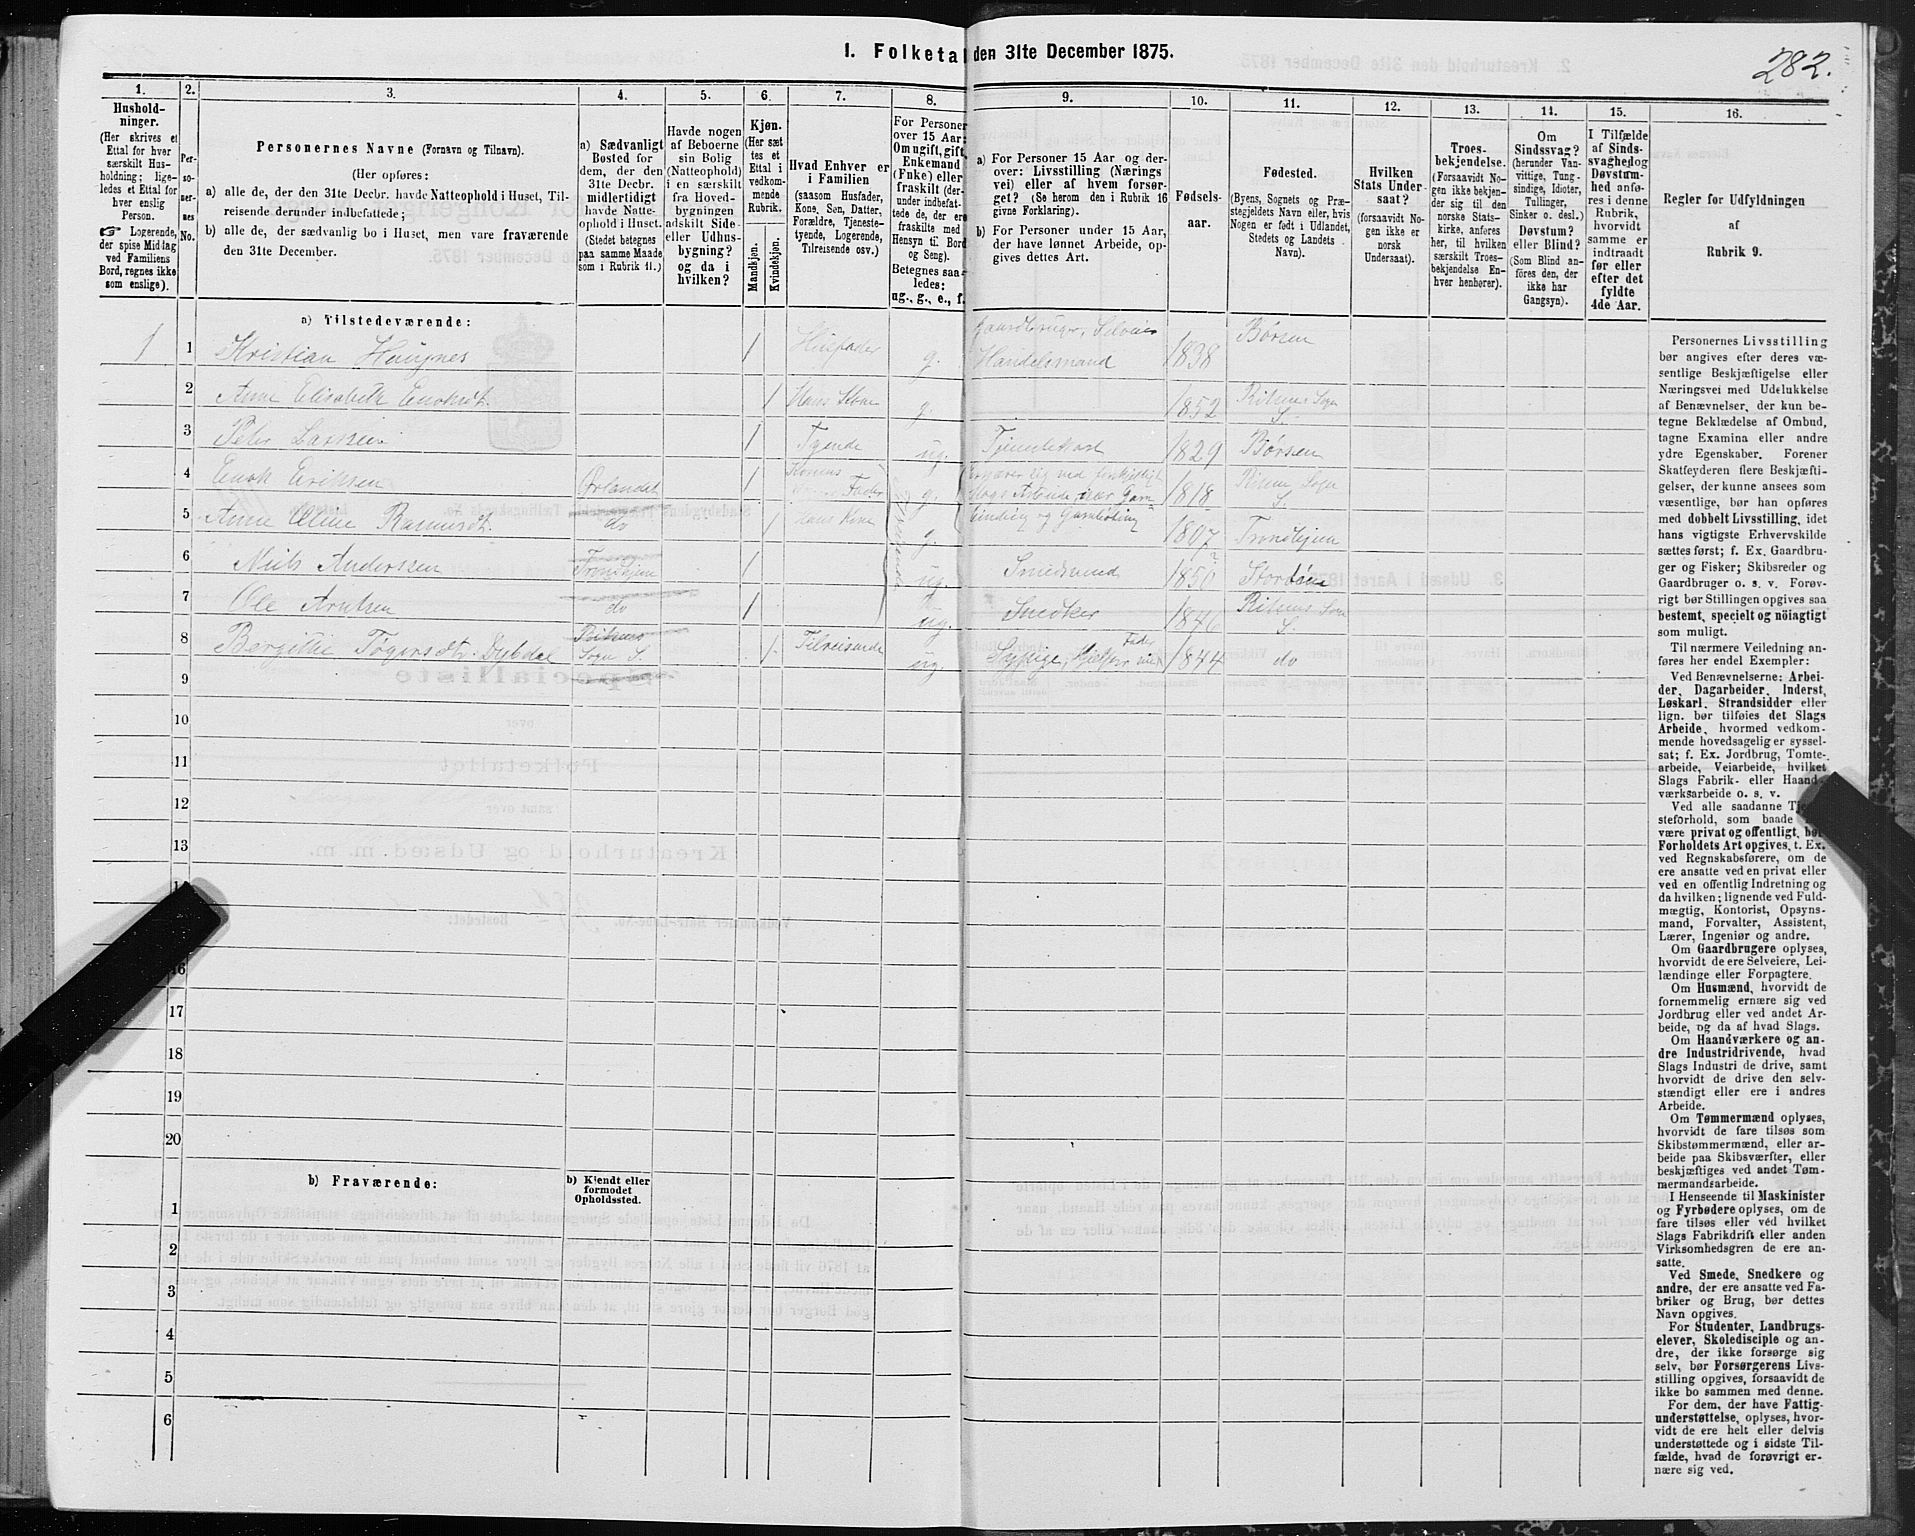 I. Folketal den 31te December 1875.
282.
1.
Hushold-
ninger.
(Her skrives et
Ettal for hver
særskilt Hus-
holdning; lige-
ledes et Ettal for
hver enslig
Person.
☞ Logerende,
der spise Middag
ved Familiens
Bord, regnes ikke
som enslige).
2.
Per-
so-
ner-
nes
No.
3.
Personernes Navne (Fornavn og Tilnavn).
(Her opføres:
a) alle de, der den 31te Decbr. havde Natteophold i Huset, Til-
reisende derunder indbefattede;
b) alle de, der sædvanlig bo i Huset, men vare fraværende
den 31te December.
4.
a) Sædvanligt
Bosted for
dem, der den
31te Decbr.
midlertidigt
havde Natte-
ophold i Huset.
(Stedet betegnes
paa samme Maade
som i Rubrik 11.)
5.
Havde nogen
af Beboerne
sin Bolig
(Natteophold)
i en særskilt
fra Hoved-
bygningen
adskilt Side-
eller Udhus-
bygning?
og da i
hvilken?
6.
Kjøn.
(Her sæt-
tes et
Ettal i
vedkom-
mende
Rubrik.
Mandkjøn.
Kvindekjøn.
7.
Hvad Enhver er
i Familien
(saasom Husfader,
Kone, Søn, Datter,
Forældre, Tjeneste-
tyende, Logerende,
Tilreisende osv.)
8.
For Personer
over 15 Aar:
Om ugift, gift,
Enkemand
(Enke) eller
fraskilt (der-
under indbefat-
tede de, der ere
fraskilte med
Hensyn til Bord
og Seng).
Betegnes saa-
ledes:
ug., g., e., f.
9.
a) For Personer 15 Aar og der-
over: Livsstilling (Nærings
vei) eller af hvem forsør-
get? (Se herom den i Rubrik 16
givne Forklaring).
b) For Personer under 15 Aar,
der have lønnet Arbeide, op-
gives dettes Art.
10.
Fødsels-
aar.
11.
Fødested.
(Byens, Sognets og Præ-
stegjeldets Navn eller, hvis
Nogen er født i Udlandet,
Stedets og Landets
Navn).
12.
Hvilken
Stats Under-
saat?
(forsaavidt No-
gen ikke er
norsk
Undersaat).
13.
Troes-
bekjendelse.
(Forsaavidt No-
gen ikke bekjen-
der sig til den
norske Stats-
kirke, anføres
her, til hvilken
særskilt Troes-
bekjendelse En-
hver henhører).
14.
Om
Sindssvag?
(herunder Van-
vittige, Tung-
sindige, Idioter,
Tullinger,
Sinker o. desl.)
Døvstum?
eller Blind?
(Som Blind an-
føres den, der
ikke har
Gangsyn).
15.
I Tilfælde
af Sinds-
svaghed og
Døvstum-
hed anfø-
res i denne
Rubrik,
hvorvidt
samme er
indtraadt
før eller
efter det
fyldte
4de Aar.
16.
Regler for Udfyldningen
af
Rubrik 9.
a) Tilstedeværende:
1 1 Kristian Haugnes 1 Husfader g. Gaardbruger, Selveier Handelsmand 1838 Børsen
2 Anne Elisabeth Enoksdt. 1 Hans Kone g. 1852 Rissens Sogn
3 Peter Larssen 1 Tyende ug. 1829 Børsen
4 Enok Eriksen Ørlandet 1 Konens Fader g. 1818 Sogn
5 Anne Rasmusdt. do 1 hans Kone g. binding og 1807 Trondhjem
6 Niels Anderssen Trondhjem 1 ug. Smedsvend 1850 Stordøen
7 Ole Arntsen do 1 ug. Snedker 1846 Sogn
8 Bergitte Dybdal Sogn S. 1 Tilreisende ug. Fader 1844 do
9
10
11
12
13
16
17
18
19
20
b) Fraværende:
b) Kjendt eller
formodet
Opholdssted.
1
2
3
4
5
6
Personernes Livsstilling
bør angives efter deres væ-
sentlige Beskjæftigelse eller
Næringsvei med Udelukkelse
af Benævnelser, der kun be-
tegne Beklædelse af Ombud,
tagne Examina eller andre
ydre Egenskaber. Forener
Skatteyderen flere Beskjæfti-
gelser, der kunne ansees som
væsentlige, bør han opføres
med dobbelt Livsstilling, idet
hans vigtigste Erhvervskilde
sættes først; f. Ex. Gaardbru-
ger og Fisker; Skibsreder og
Gaardbruger o. s. v. Forøv-
rigt bør Stillingen opgives saa
bestemt, specielt og nöiagtigt
som muligt.
Til nærmere Veiledning an-
føres her endel Exempler:
Ved Benævnelserne: Arbei-
der, Dagarbeider, Inderst,
Løskarl, Strandsidder eller
lign. bør tilføies det Slags
Arbeide, hvormed vedkom-
mende hovedsagelig er syssel-
sat; f. Ex. Jordbrug, Tomte-
arbeide, Veiarbeide, hvilket
Slags Fabrik- eller Haand-
værksarbeide o. s. v.
Ved alle saadanne Tje-
steforhold, som baade
være privat og offentligt, bør
Forholdets Art opgives, t. Ex.
ved Regnskabsførere, om de
ere ansatte ved en privat eller
ved en offentlig Indretning og
da hvilken; lignende ved Fuld-
mægtig, Kontorist, Opsyns-
mand, Forvalter, Assistent,
Lærer, Ingeniør og andre.
Om Gaardbrugere oplyses,
hvorvidt de ere Selveiere, Lei-
lændinge eller Forpagtere.
Om Husmænd, hvorvidt de
fornemmelig ernære sig ved
Jordbrug eller ved andet Ar-
beide, og da af hvad Slags.
Om Haandværkere og an-
dre Industridrivende, hvad
Slags Industri de drive, samt
hvorvidt de drive den selv-
stændigt eller ere i andres
Arbeide.
Om Tømmermænd oplyses,
hvorvidt de fare tilsøs som
Skibstømmermænd, eller ar-
beide paa Skibsværfter, eller
beskjæftiges ved andet Tøm-
mermandsarbeide.
I Henseende til Maskinister
og Fyrbødere oplyses, om de
fare tilsøs eller ved hvilket
Slags Fabrikdrift eller anden
Virksomhedsgren de ere an-
satte.
Ved Smede, Snedkere og
andre, der ere ansatte ved Fa-
briker og Brug, bør dettes
Navn opgives.
For Studenter, Landbrugs-
elever, Skoledisciple og an-
dre, der ikke forsørge sig
selv, bør Forsørgerens Livs-
stilling opgives, forsaavidt de
ikke bo sammen med denne.
For dem, der have Fattig-
understøttelse, oplyses, hvor-
vidt de ere helt eller delvis
understøttede og i sidste Til-
fælde, hvad de forøvrigt er-
nære sig ved.